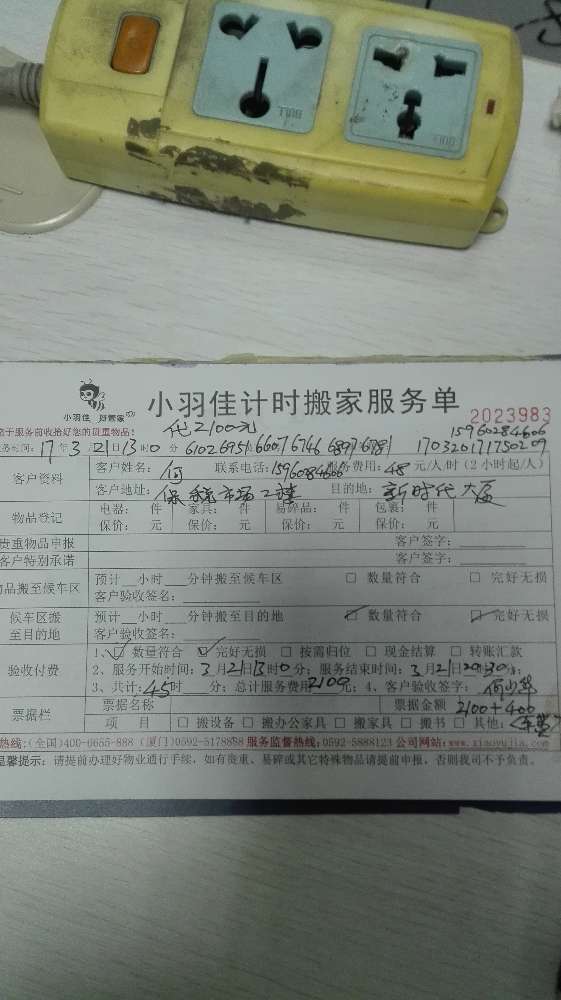 BULL
BULL
小羽佳计时搬家服务单
小羽佳 好管家
2023983
于服务前收拾好您的贵重物品!
代2100元
15960284606
务时间: 17 年 3 月 21 日 13 时 0 分
170326171750209
客户资料
客户姓名: 何 联系电话: 服务费用: 48 元/人时 (2小时起/人)
客户地址: 保税市场二楼 目的地: 新时代大厦
物品登记
电器: 件 家具: 件 易碎品: 件 包裹: 件
保价: 元 保价: 元 保价: 元 保价: 元
贵重物品申报 客户签字:
客户特别承诺 客户签字:
物品搬至候车区
预计 小时 分钟搬至候车区 □ 数量符合 □ 完好无损
客户验收签名:
候车区搬至目的地
预计 小时 分钟搬至目的地 ☑ 数量符合 ☑ 完好无损
客户验收签名:
验收付费
1、☑ 数量符合 ☑ 完好无损 □ 按需归位 □ 现金结算 □ 转账汇款
2、服务开始时间: 3 月 21 日 13 时 0 分; 服务结束时间: 3 月 21 日 20 时 30 分;
3、共计: 45 时 分; 总计服务费用 2100 元; 4、客户验收签字:
票据栏
票据名称 票据金额 2100+400
项 目 □ 搬设备 □ 搬办公家具 □ 搬家具 □ 搬书 □ 其他: (车费)
热线: (全国)400-0655-888 (厦门)0592-5178888 服务监督热线:0592-5888123 公司网站: www.xiaoyujia.com
温馨提示: 请提前办理好物业通行手续,如有贵重、易碎或其它特殊物品请提前申报,否则我司不予负责。